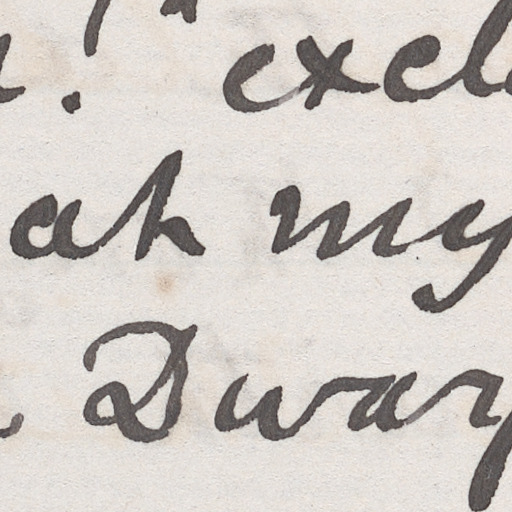 ! excl
ah my
Dwar